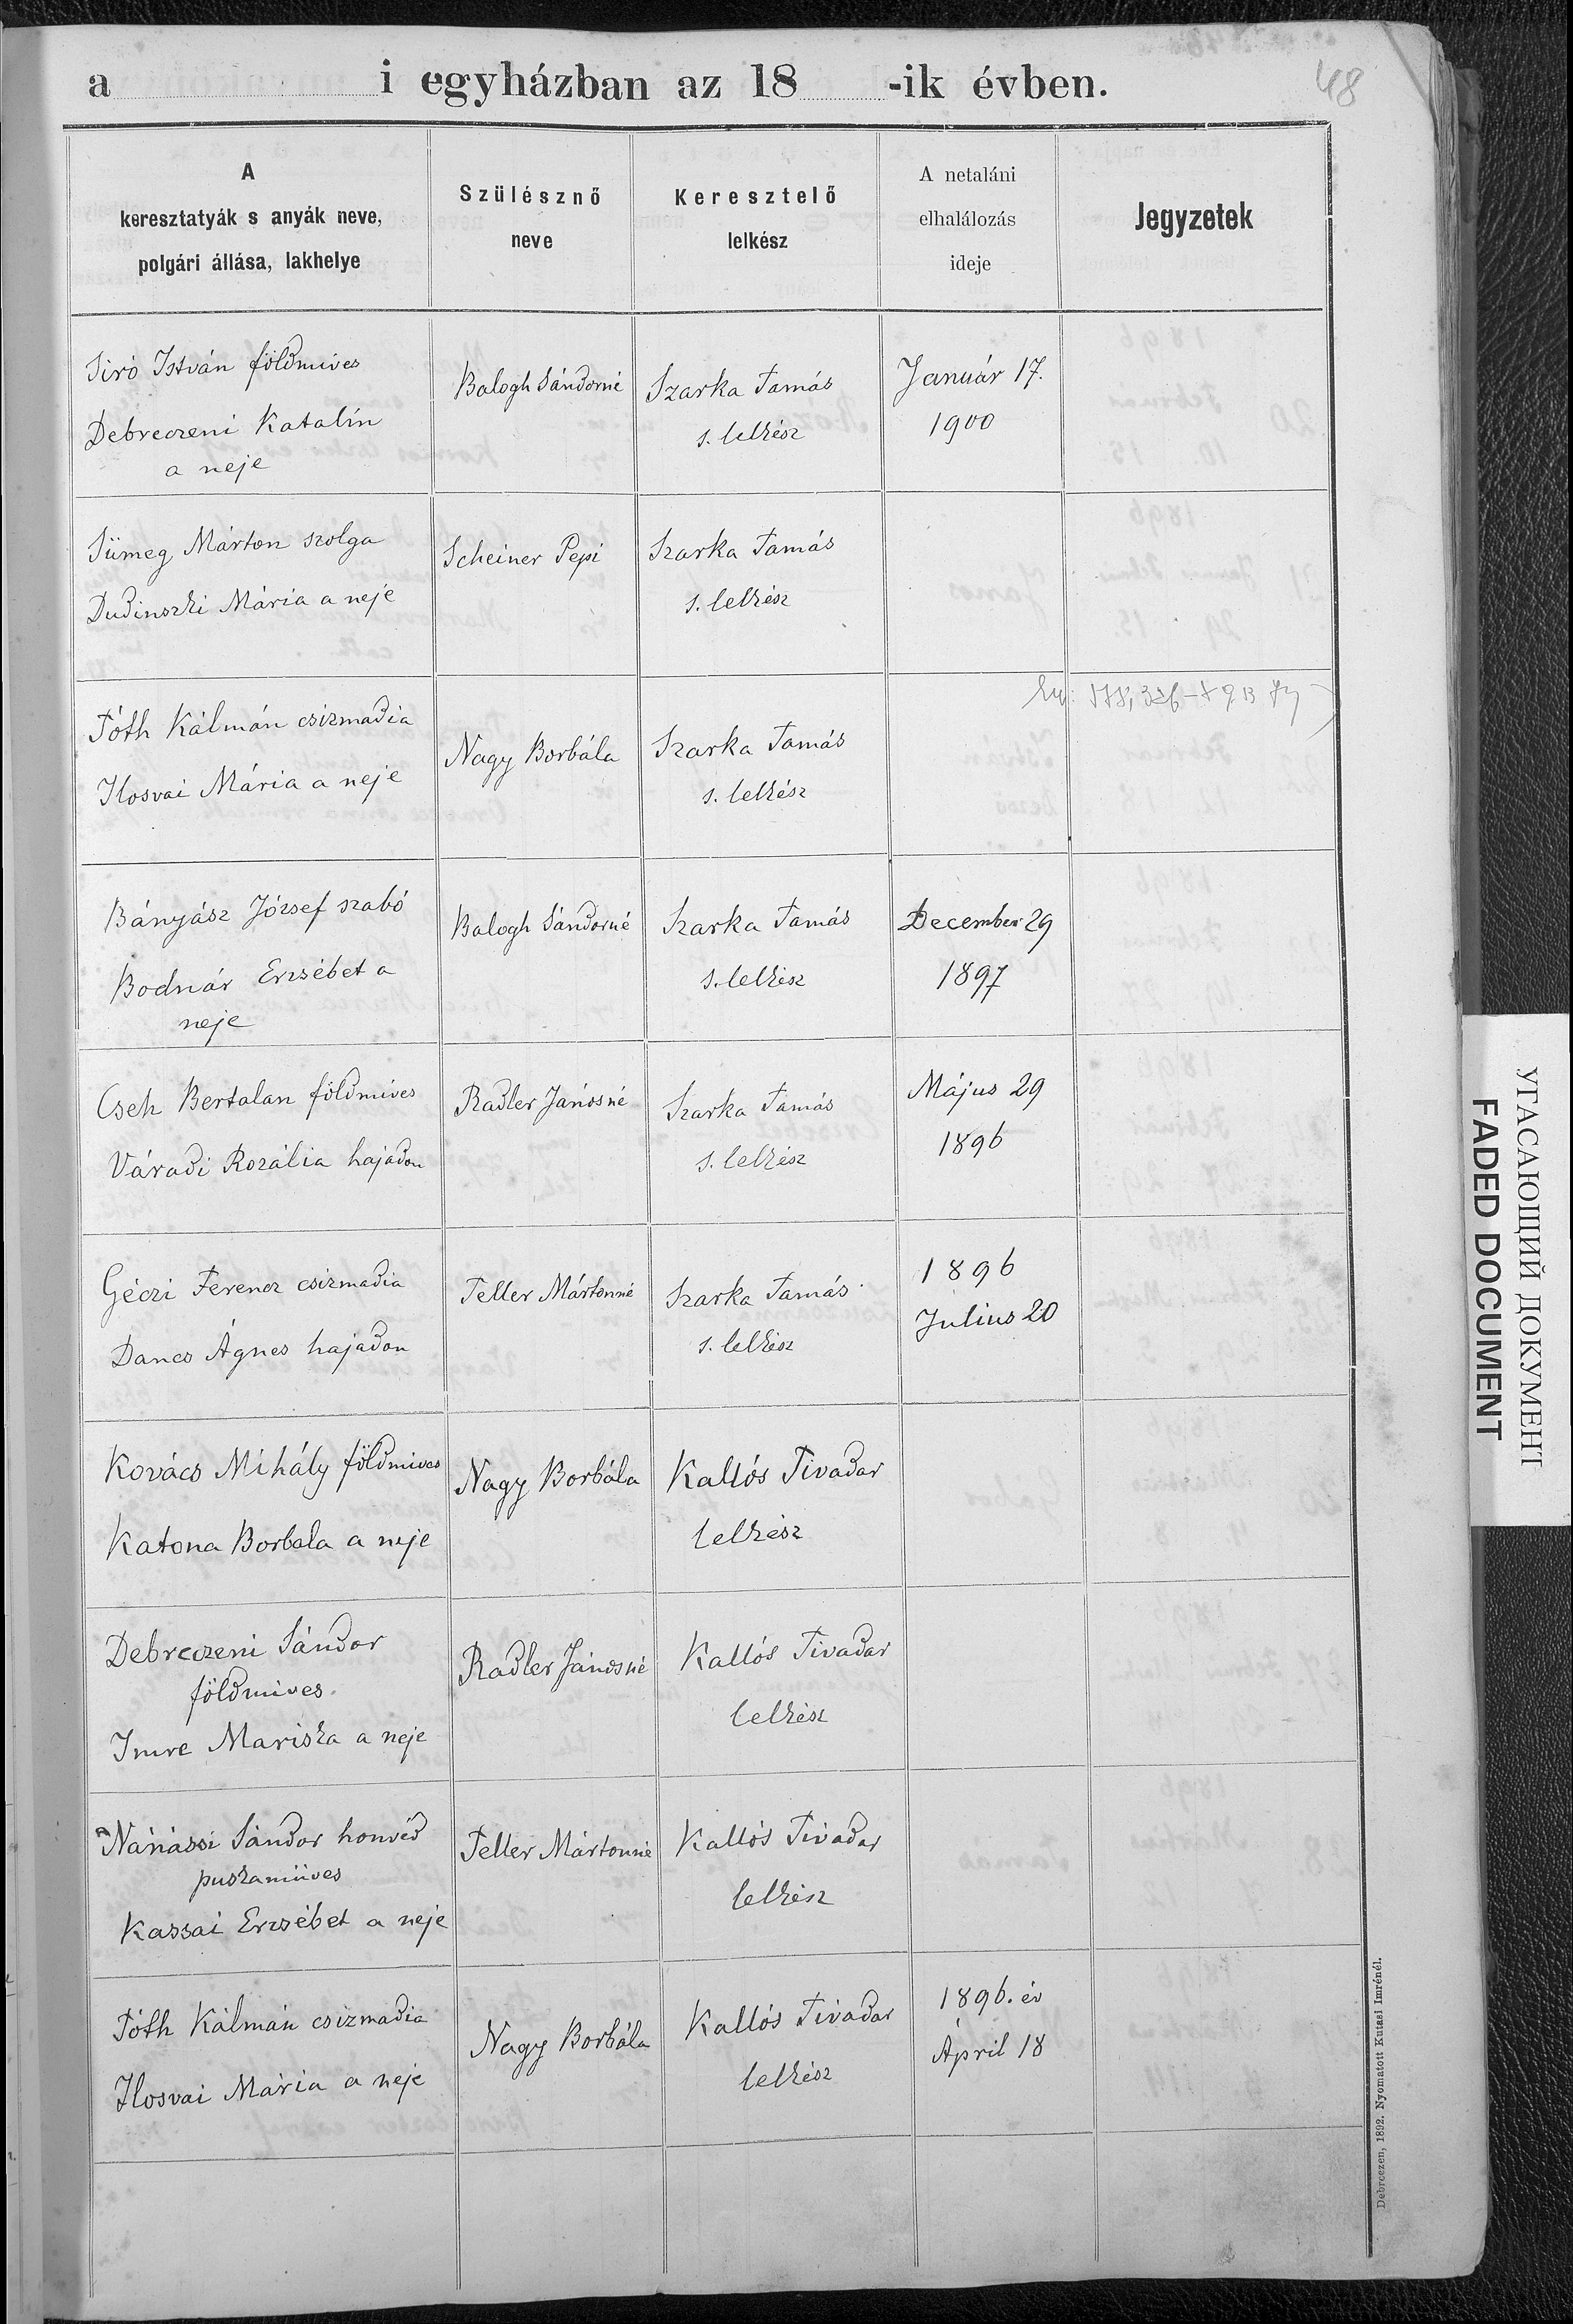 a i egyházban az 18 -ik évben.
48
A
keresztatyák s anyák neve,
polgári állása, lakhelye
Szülésznő
neve
Keresztelő
lelkész
A netaláni
elhalálozás
ideje
Jegyzetek
Siró István földmíves
Debreczeni Katalin
a neje
Balogh Sándorné
Szarka Tamás
s. lelkész
Január 17.
1900
Sümeg Márton szolga
Dudinszki Mária a neje
Scheiner Pepi
Szarka Tamás
s. lelkész
Tóth Kálmán csizmadia
Ilosvai Mária a neje
Nagy Borbála
Szarka Tamás
s. lelkész
Bányász József szabó
Bodnár Erzsébet a
neje
Balogh Sándorné
Szarka Tamás
s. lelkész
December 29
1897
Cseh Bertalan földmíves
Váradi Rozália hajadon
Radler Jánosné
Szarka Tamás
s. lelkész
Május 29
1896
Géczi Ferencz csizmadia
Dancs Ágnes hajadon
Teller Mártonné
Szarka Tamás
s. lelkész
1896
Julius 20
Kovács Mihály földmives
Katona Borbala a neje
Nagy Borbála
Kallós Tivadar
lelkész
Debreczeni Sándor
földmives
Imre Mariska a neje
Radler Jánosné
Kallós Tivadar
lelkész
Nánássi Sándor honvéd
puskamüves
Kassai Erzsébet a neje
Teller Mártonné
Kallós Tivadar
lelkész
Tóth Kálmán csizmadia
Ilosvai Mária a neje
Nagy Borbála
Kallós Tivadar
lelkész
1896. év
Ápril 18
Debreczen, 1892. Nyomatott Kutasi Imrénél.
УГАСАЮЩИЙ ДОКУМЕНТ
FADED DOCUMENT